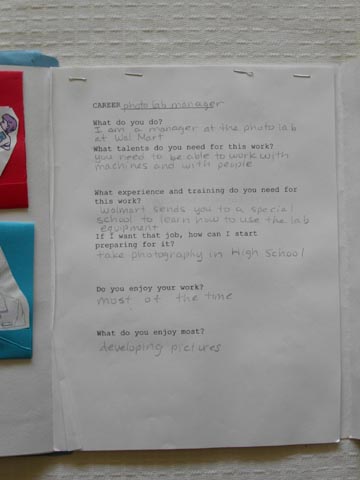 CAREER photo lab manager
What do you do?
I am a manager at the photo lab
at Wal Mart
What talents do you need for this work?
you need to be able to work with
machines and with people
What experience and training do you need for
this work?
walmart sends you to a special
school to learn how to use the lab
equipment
If I want that job, how can I start
preparing for it?
take photography in High School
Do you enjoy your work?
most of the time
What do you enjoy most?
developing pictures